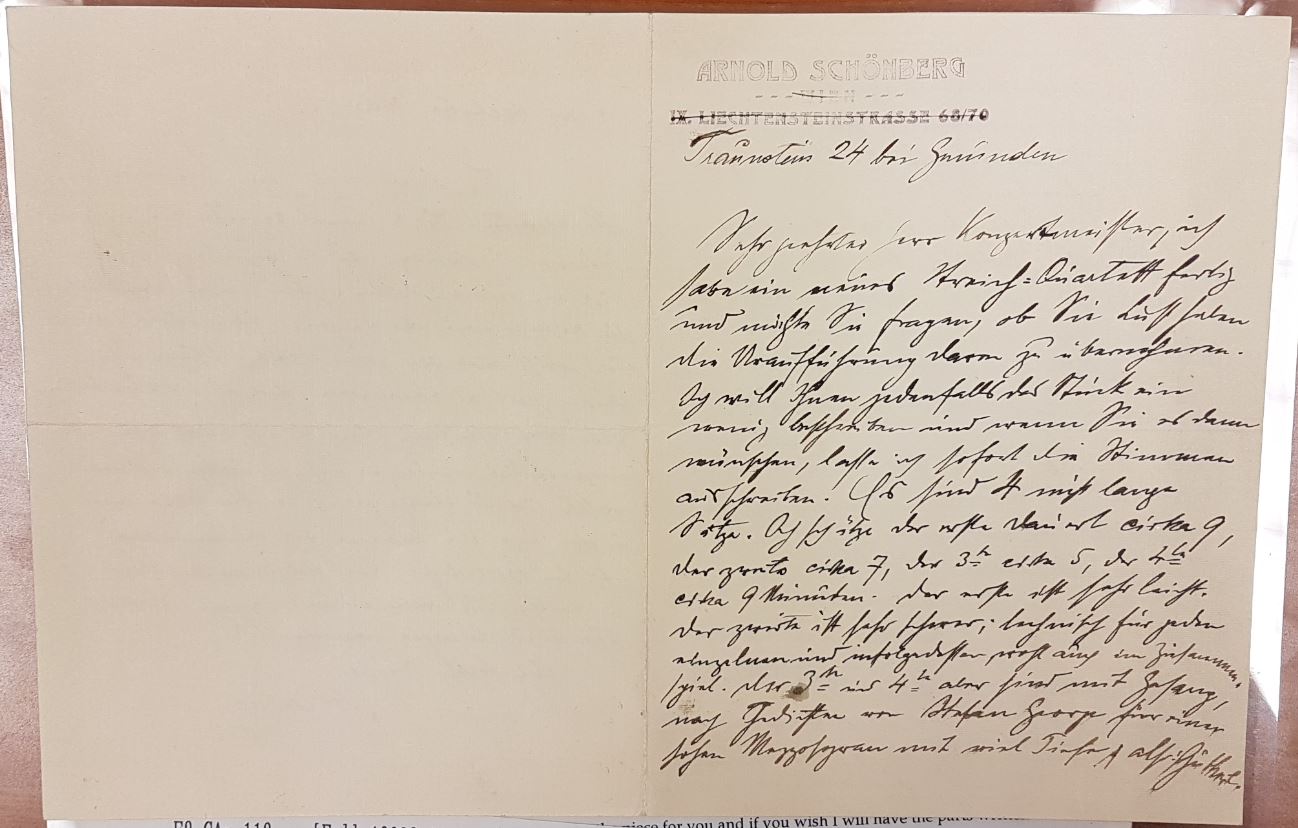 ARNOLD SCHÖNBERG
--- WIEN ---
IX. LIECHTENSTEINSTRASSE 68/70
Traunstein 24 bei Gmunden
Sehr geehrter Herr Konzertmeister, ich
habe ein neues Streich=Quartett fertig
und möchte Sie fragen, ob Sie Lust haben
die Uraufführung davon zu übernehmen.
Ich will Ihnen jedenfalls das Stück ein
wenig beschreiben und wenn Sie es dann
wünschen, lasse ich sofort die Stimmen
ausschreiben. Es sind 4 nicht lange
Sätze. Ich schätze der erste dauert cirka 9,
der zweite cirka 7, der 3te cirka 5, der 4te
cirka 9 Minuten. Der erste ist sehr leicht.
Der zweite ist sehr schwer; technisch für jeden
einzelnen und infolgedessen wohl auch im Zusammen-
spiel. Der 3te und 4te aber sind mit Gesang,
nach Gedichten von Stefan George für einen
hohen Mezzosopran mit viel Tiefe
piece for you and if you wish I will have the parts